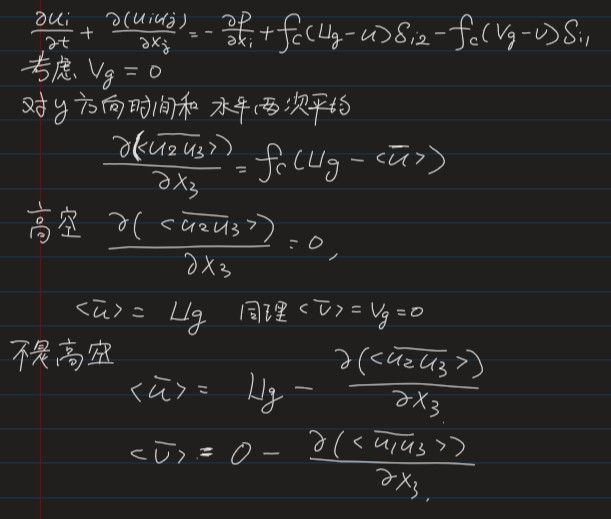 ∂u_i/∂t + ∂(u_i u_j)/∂x_j = -∂P/∂x_i + f_c(U_g-u)δ_{i2} - f_c(V_g-v)δ_{i1}
考虑 V_g = 0
对y方向时间和 水平两次平均
∂(<\overline{u_2 u_3}>)/∂x_3 = f_c(U_g - <\overline{u}>)
高空 ∂(<\overline{u_2 u_3}>)/∂x_3 = 0,
<\overline{u}> = U_g 同理 <\overline{v}> = V_g = 0
不是高空
<\overline{u}> = U_g - ∂(<\overline{u_2 u_3}>)/∂x_3
<\overline{v}> = 0 - ∂(<\overline{u_1 u_3}>)/∂x_3.